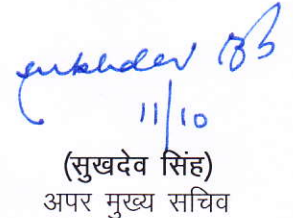 sukhdev
11/10
(सुखदेव सिंह)
अपर मुख्य सचिव